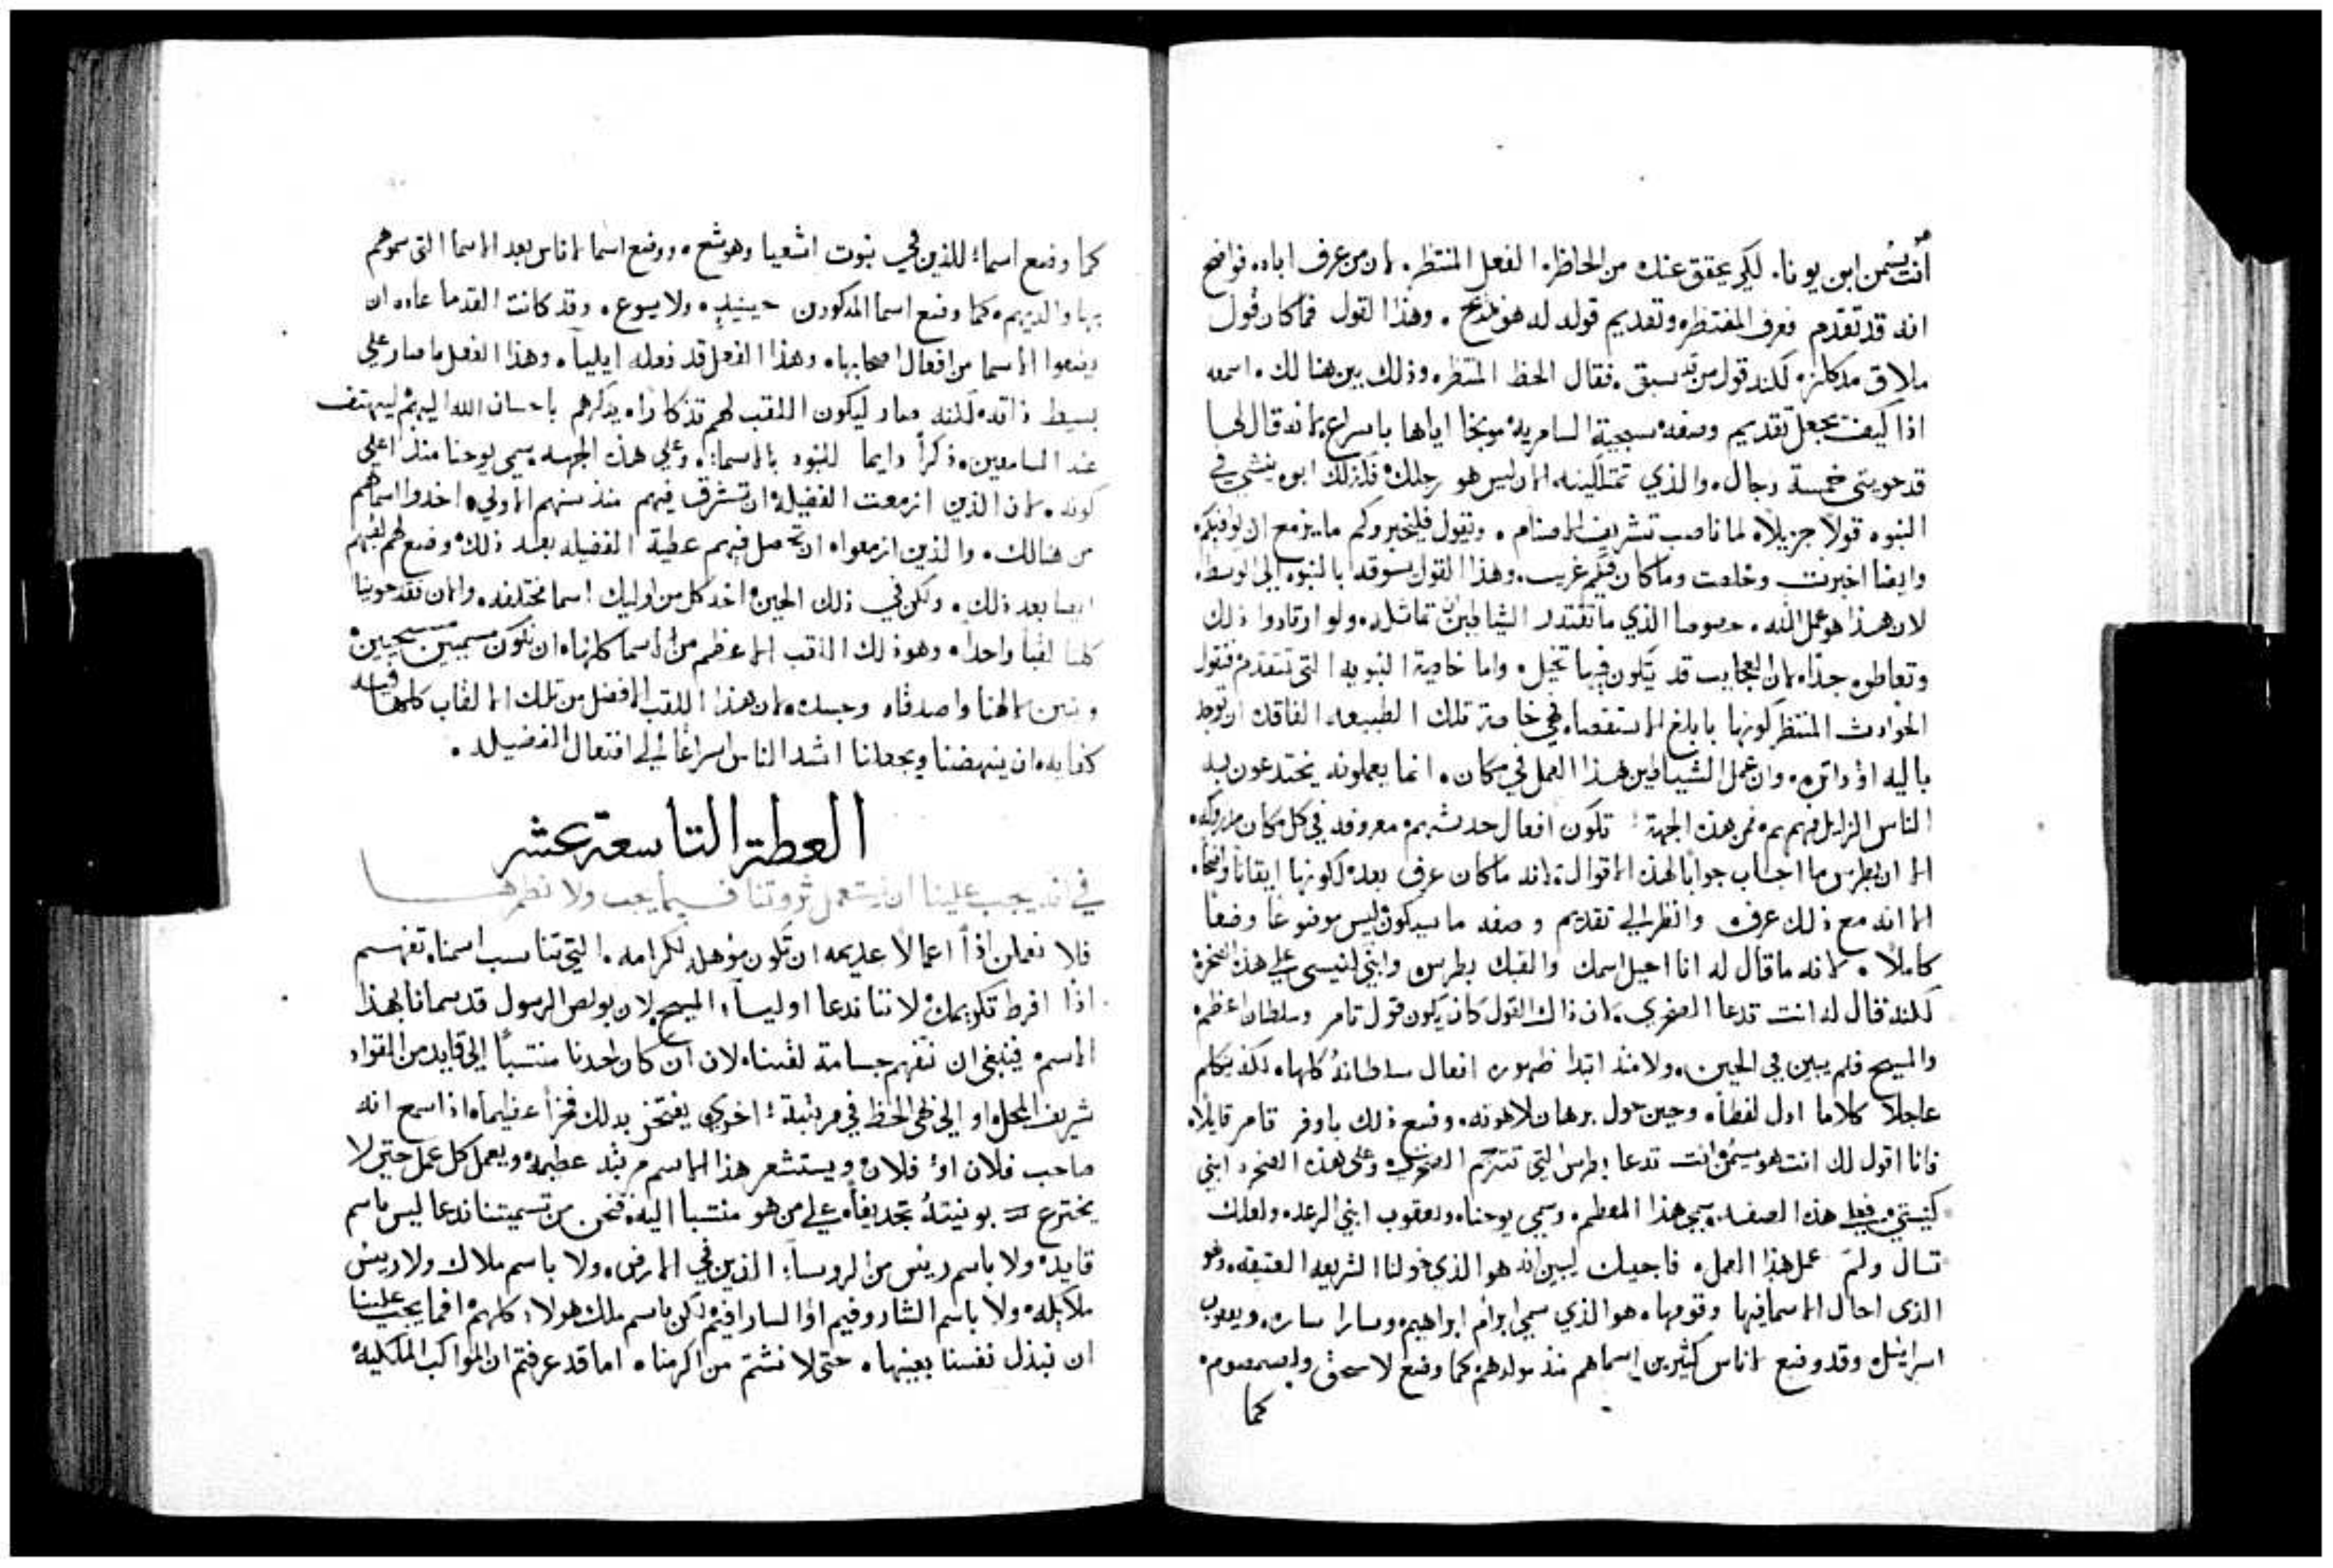 أنت هو سيمن ابن يونا. لكي يحقق عندك من الحاظره الفعل المنتظر. لان من عرف اباه. فواضح
انه قد تقدم فعرف المنتظره وتقديم قوله له هو مديح. وهذا القول فما كان قول
ملاق لكنه قول من قد سبق. فقال الحظ المنتظره وذلك بين هنا لك. اسمعه
اذا كيف يجعل تقديم وصفه سجية السامرية موبخا اياها باسراع. لانه قال لها
قد حويتي خمسة رجال. والذي تمتلكينه الان ليس هو رجلك فكذلك ابوه ينشي في
النبوه قولاً جزيلاً لما ناصب تشريف الاصنام. ونقول فليخبروكم ما يزمع ان يوافيكم
وايضا اخبرت وخلصت وما كان فيكم غريب. وهذا القول يسوقه بالنبوه الى الوسط.
لان هذا هو عمل الله. خصوصا الذي ما تقتدر الشياطين ان تماثله. ولو ارتادوا ذلك
وتعاطوه جداً. لان العجايب قد يكون فيها تخيل. واما خاصية النبويه التي تتقدم فتقول
الحوادث المنتظر كونها بابلغ الاستقصا. فهي خاصة تلك الطبيعه الفاقد ان توجد
باليه او داثره. وان عمل الشياطين هذا العمل في مكان. انما يعملونه يختدعون به
الناس الزايل فهمهم. فمن هذه الجهة تكون افعال حدسهم معروفه في كل مكان
الا ان بطرس ما اجاب جواباً لهذه الاقوال. لانه ما كان عرف بعد كونها ايقاناً واضحا.
الا انه مع ذلك عرف وانظر الي تقديم وصفه ما سيكون ليس موضوعاً وضعاً
كاملاً. لانه ما قال له انا احيل اسمك والقبك بطرس وابني كنيستى علي هذه الصخرة
لكنه قال له انت تدعا الصخري. لان ذاك القول كان يكون قول تامر وسلطان اعظم.
والمسيح فلم يبين في الحين. ولا منذ ابتدا ظهوره افعال سلطانه كلها. لكنه يتكلم
عاجلاً كلاما اول لفظاً. وحين خول برهان لاهوته. وضع ذلك باوفر تامر قايلا.
فانا اقول لك انت هو سيمن انت تدعا بطرس التي تترجم الصخري. وعلى هذه الصخره ابني
كنيستي. فعلى هذه الصفه سمي هذا المعظم. وسمي يوحنا. ويعقوب ابني الرعد. ولعلك
تسال ولمَ عمل هذا العمل. فاجيبك ليبين انه هو الذي خولنا الشريعه العتيقه. وهو
الذى احال الاسما فيها وقومها. هو الذي سمي ابرام ابراهيم. وسارا ساره. ويعقوب
اسراييل. وقد وضع لاناس كثيرين اسماهم منذ مولدهم كما وضع لاسحق ولسمصوم.
كما
كما وضع اسماء للذين في نبوت اشعيا وهوشع. ووضع اسما لاناس بعد الاسما التى سموهم
بها والديهم. كما وضع اسما المذكورين حينيذٍ. ولا يسوع. وقد كانت القدما عاده ان
يضعوا الاسما من افعال اصحابها. وهذا الفعل قد فعله ايلياً. وهذا الفعل ما صار علي
بسيط ذاته. لكنه صار ليكون اللقب لهم تذكاراً. يذكرهم باحسان الله اليهم ليهتف
عند السامعين ذكراً دايما للنبوه بالاسماء. وعلى هذه الجهه سمي يوحنا منذ اعلى
كونه. لان الذين ازمعت الفضيلة ان تشرق فيهم منذ سنهم الاولي. اخدوا اسماهم
من هنالك. والذين ازمعوا ان تحصل فيهم عطية الفضيله بعد ذلك. وضع لهم لقبهم
ايضا بعد ذلك. ولكن في ذلك الحين اخد كل من اوليك اسما مختلفه. والان فقد حوينا
كلنا لقباً واحداً. وهو ذلك اللقب الاعظم من الاسما كلها. ان نكون مسميين مسيحيين
وبنين لالهنا واصدقاه وجسده. لان هذا اللقب الافضل من تلك الالقاب كلها فيه
كفايه. ان ينهضنا ويجعلنا اشد الناس اسراعاً الي افتعال الفضيله.
العظة التاسعة عشر
في انه يجب علينا ان نستعمل ثروتنا فيما يجب ولا نطمرها
فلا نعملن اذاً اعمالاً عديمه ان تكون موهله لكرامه. التي تناسب اسمنا. تفهم
اذاً افرط تكريمك لاننا ندعا اولياء المسيح. لان بولص الرسول قد سمانا بهذا
الاسم. فينبغي ان نتفهم جسامة لقبنا. لان ان كان احدنا منتسباً الى قايد من القواد
شريف المحل. او الى ظهى الحظ في مرتبة اخرى يفتخر بذلك فخراً عظيماً. اذا سمع انه
صاحب فلان او فلان. ويستشعر هذا الاسم مرتبه عظيمه. ويعمل كل عمل حتى لا
يخترع بونيته تجديفاً على من هو منتسباً اليه. فنحن من تسميتنا ندعا ليس باسم
قايد. ولا باسم رييس من الروساء الذين في الارض. ولا باسم ملاك ولا رييس
ملايكه. ولا باسم الشاروفيم او الساراَفيم. لكن باسم ملك هولاء كلهم. افما يجب علينا
ان نبذل نفسنا بعينها. حتى لا نشتم من اكرمنا. اما قد عرفتم ان المواكب الملكيه